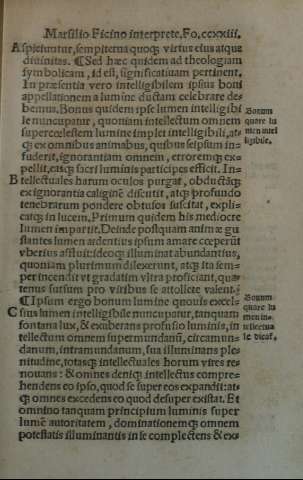 Marsilio Ficino interprete. Fo.ccxxiii.
A spiciuntur, sempiterna quoq; virtus eius atque
diuinitas. ¶ Sed hæc quidem ad theologiam
symbolicam, id est, significatiuam pertinent.
In præsentia vero intelligibilem ipsius boni
appellationem a lumine ductam celebrare de
bemus. Bonus quidem ipse lumen intelligibi
le nuncupatur, quoniam intellectum omnem
supercœlestem lumine implet intelligibili, at
q; ex omnibus animabus, quibus seipsum in
fuderit, ignorantiam omnem, erroremq; ex
pellit, easq; sacri luminis participes efficit. In
B tellectuales harum oculos purgat, obductáq;
ex ignorantia caligine discutit, atq; profundo
tenebrarum pondere obtusos suscitat, expli
catq; in lucem, Primum quidem his mediocre
lumen impartit. Deinde postquam animæ gu
stantes lumen ardentius ipsum amare cœperūt
vberius affluit: ideoq; illuminat abundantius,
quoniam plurimum dilexerunt, atq; ita sem-
per incendit vt gradatim vltra proficiant, qua
tenus sursum pro viribus se attollere valent.
¶ Ipsum ergo bonum lumine qnouis excel-
C sius lumen intelligibile nuncupatur, tanquam
fontana lux, & exuberans profusio luminis, in
tellectum omnem supermundanū, circamun-
danum, intramundanum, sua illuminans ple-
nitudine, totasq; intellectuales horum vires re
nouans: & omnes deniq; intellectus compre-
hendens eo ipso, quod se super eos expandit: at-
q; omnes excedens eo quod desuper existat. Et
omnino tanquam principium luminis super
lumē autoritatem, dominationemq; omnem
potestatis illuminantis in se complectens & ex-
Bonum
quare lu
men intel
ligibile.
Bonum
quare lu
men in-